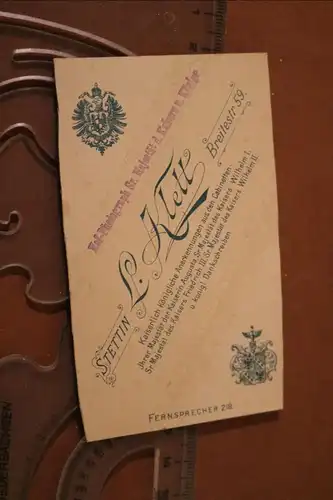 Hof-Photograph Sr. Majestät d. Kaisers u. Königs
L. Klett
STETTIN
Breitestr. 59.
Kaiserlich Königliche Anerkennungen aus den Cabinetten
Ihrer Majestät der Kaiserin Augusta Sr. Majestät des Kaisers Wilhelm I.
Sr. Majestät des Kaisers Friedrich III. Sr. Majestät des Kaisers Wilhelm II.
u. königl. Dankschreiben
FERNSPRECHER 218.